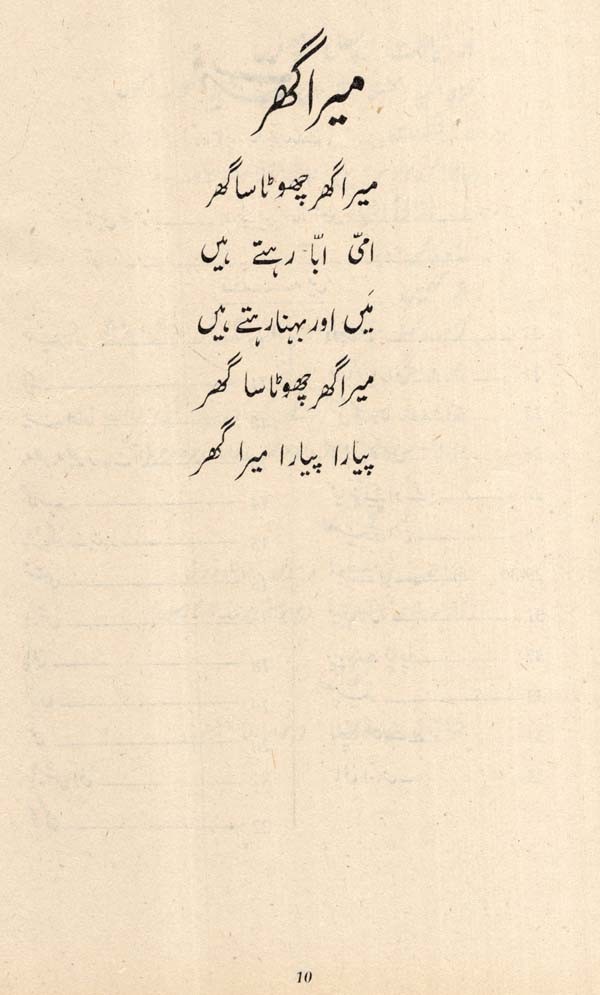 میرا گھر
میرا گھر چھوٹا سا گھر
امیّ ابّا رہتے ہیں
مَیں اور بہنا رہتے ہیں
میرا گھر چھوٹا سا گھر
پیارا پیارا میرا گھر
10